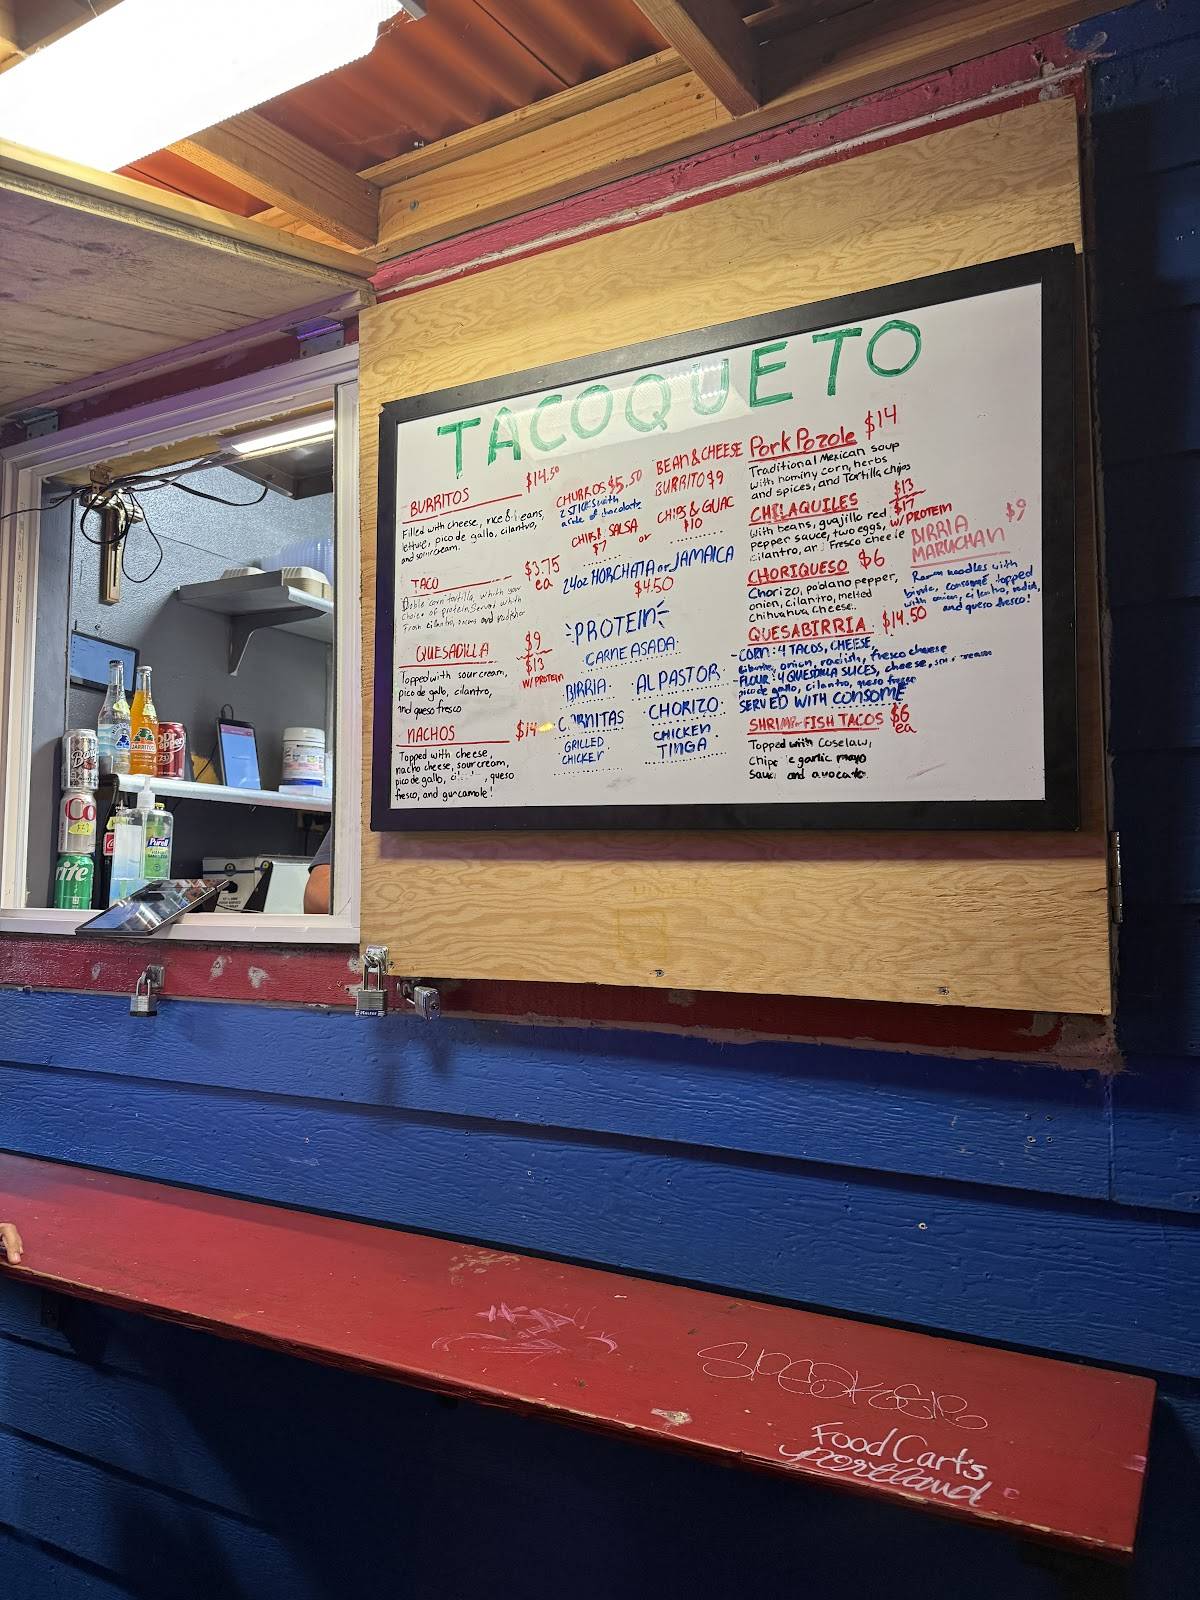 TACOQUETO
BURRITOS $14.50
Filled with cheese, rice & beans,
lettuce, pico de gallo, cilantro,
and sour cream.
TACO $3.75
ea
Doble corn tortilla, whith your
Choice of protein. Served whith
Fresh cilantro, onions and radishes
QUESADILLA $9
$13
W/ PROTEIN
Topped with sour cream,
pico de gallo, cilantro,
and queso fresco
NACHOS $14
Topped with cheese
nacho cheese, sour cream,
pico de gallo, queso
fresco, and guacamole!
CHURROS $5.50
2 STICKS with
a side of chocolate
BEAN & CHEESE
BURRITO $9
CHIPS & SALSA
$7
or
CHIPS & GUAC
$10
24oz HORCHATA or JAMAICA
$4.50
PROTEIN
CARNE ASADA
BIRRIA AL PASTOR
CARNITAS CHORIZO
GRILLED
CHICKEN
CHICKEN
TINGA
Pork Pozole $14
Traditional Mexican soup
with hominy corn, herbs
and spices, and Tortilla chips
CHILAQUILES $13
$17
W/ PROTEIN
With beans, guajillo red
pepper sauce, two eggs,
cilantro, and Fresco cheese
BIRRIA
MARUCHAN $9
Ramen noodles with
birria, consomé, topped
with onion, cilantro, radish,
and queso fresco!
CHORIQUESO $6
Chorizo, poblano pepper,
onion, cilantro, melted
chihuahua cheese.
QUESABIRRIA $14.50
-CORN: 4 TACOS, CHEESE,
cilantro, onion, radish, fresco cheese
-FLOUR: 4 QUESADILLA SLICES, cheese, sour cream
pico de gallo, cilantro, queso fresco
SERVED WITH CONSOMÉ
SHRIMP-FISH TACOS $6
ea
Topped with coselaw,
Chipotle garlic mayo
Sauce and avocado.
JARRITOS
Dr Pepper
23
Co
rite
Purell
Master
SPEAKER
Food Carts
Portland